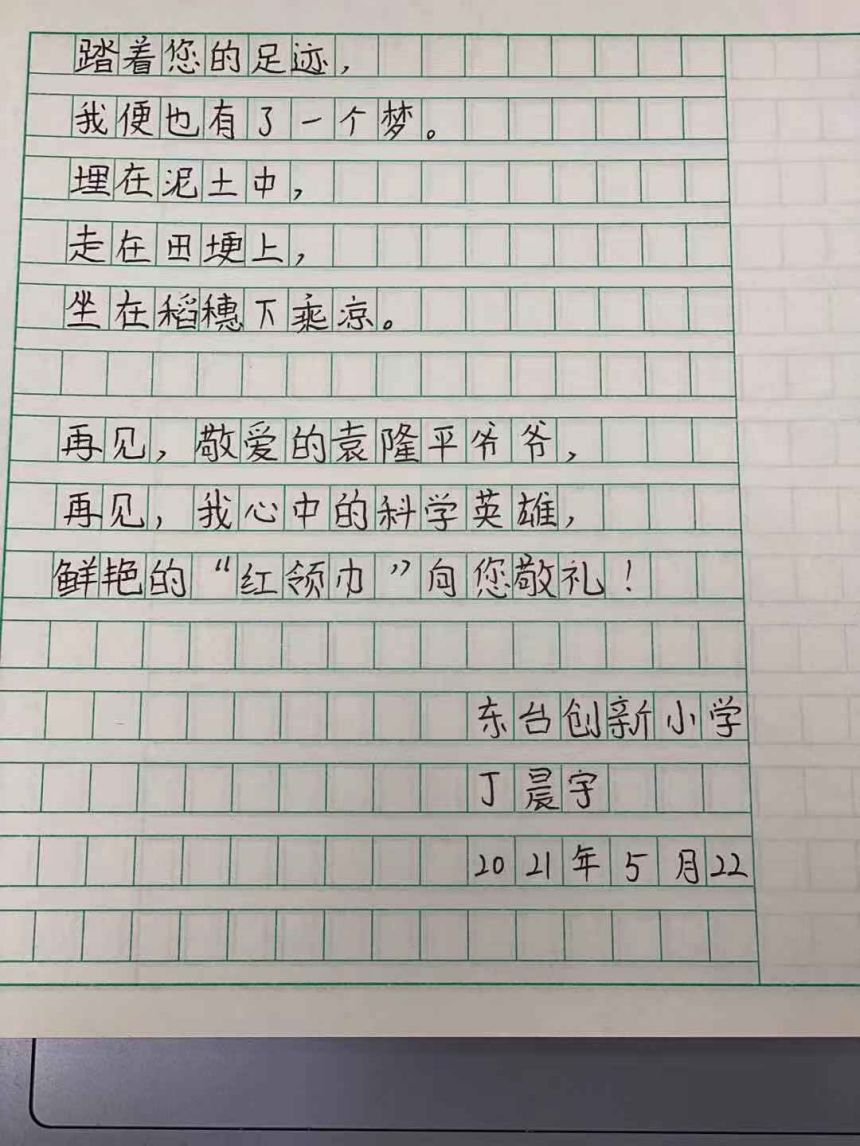 踏着您的足迹，
我便也有了一个梦。
埋在泥土中，
走在田埂上，
坐在稻穗下乘凉。
再见，敬爱的袁隆平爷爷，
再见，我心中的科学英雄，
鲜艳的“红领巾”向您敬礼！
东台创新小学
丁晨宇
2021年5月22